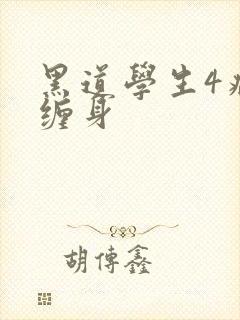 黑道學生4
缠身
胡傳鑫